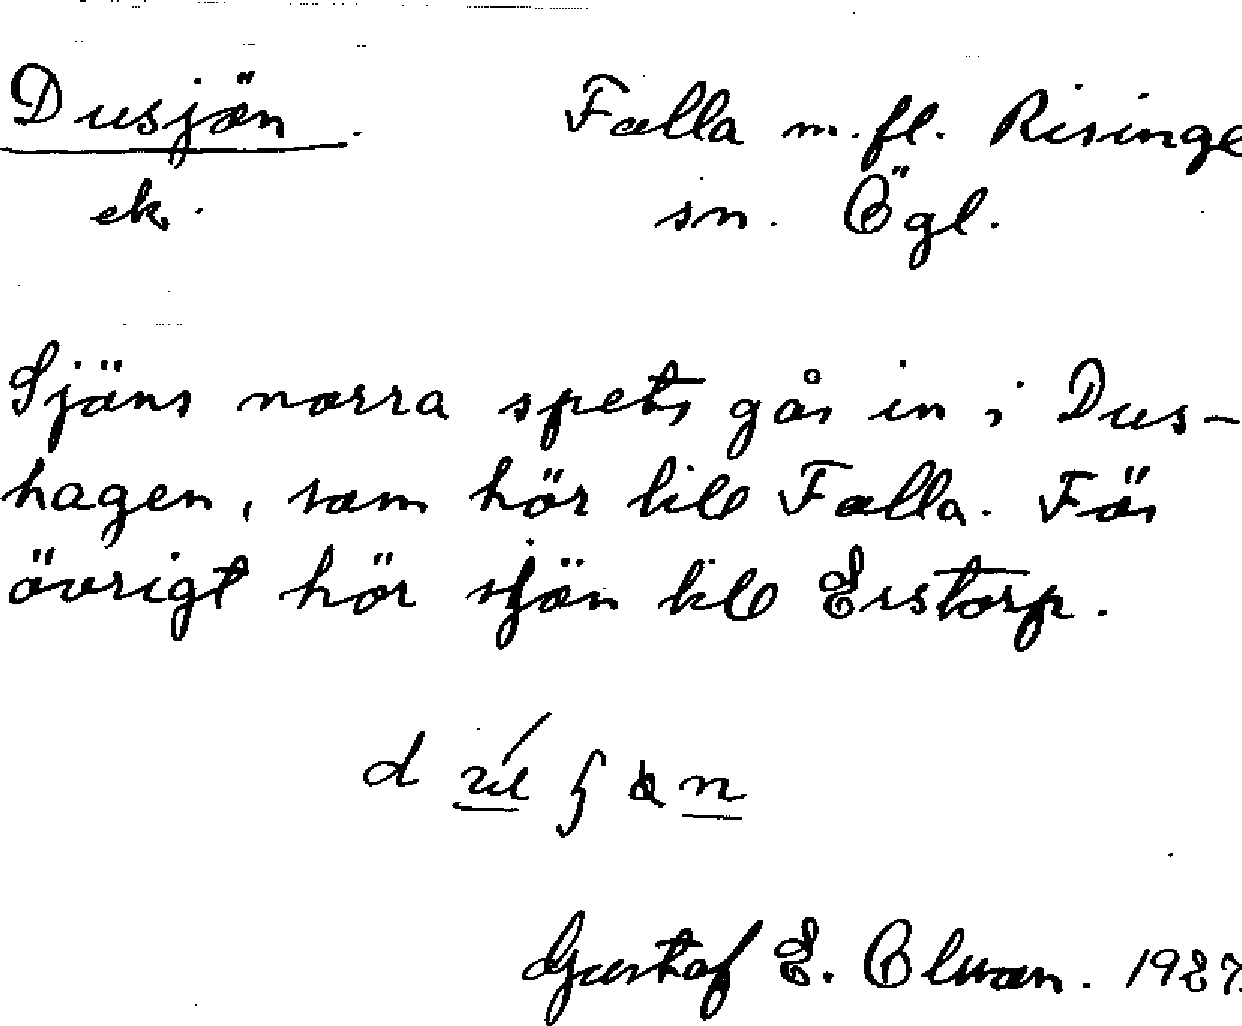 Dusjön. Falla m. fl. Risinge
ek. sn. Ögl.
Sjöns norra spets går in i Dus-
hagen, som hör till Falla. För
övrigt hör sjön till Erstorp.
Gustaf E. Olsson. 1927.